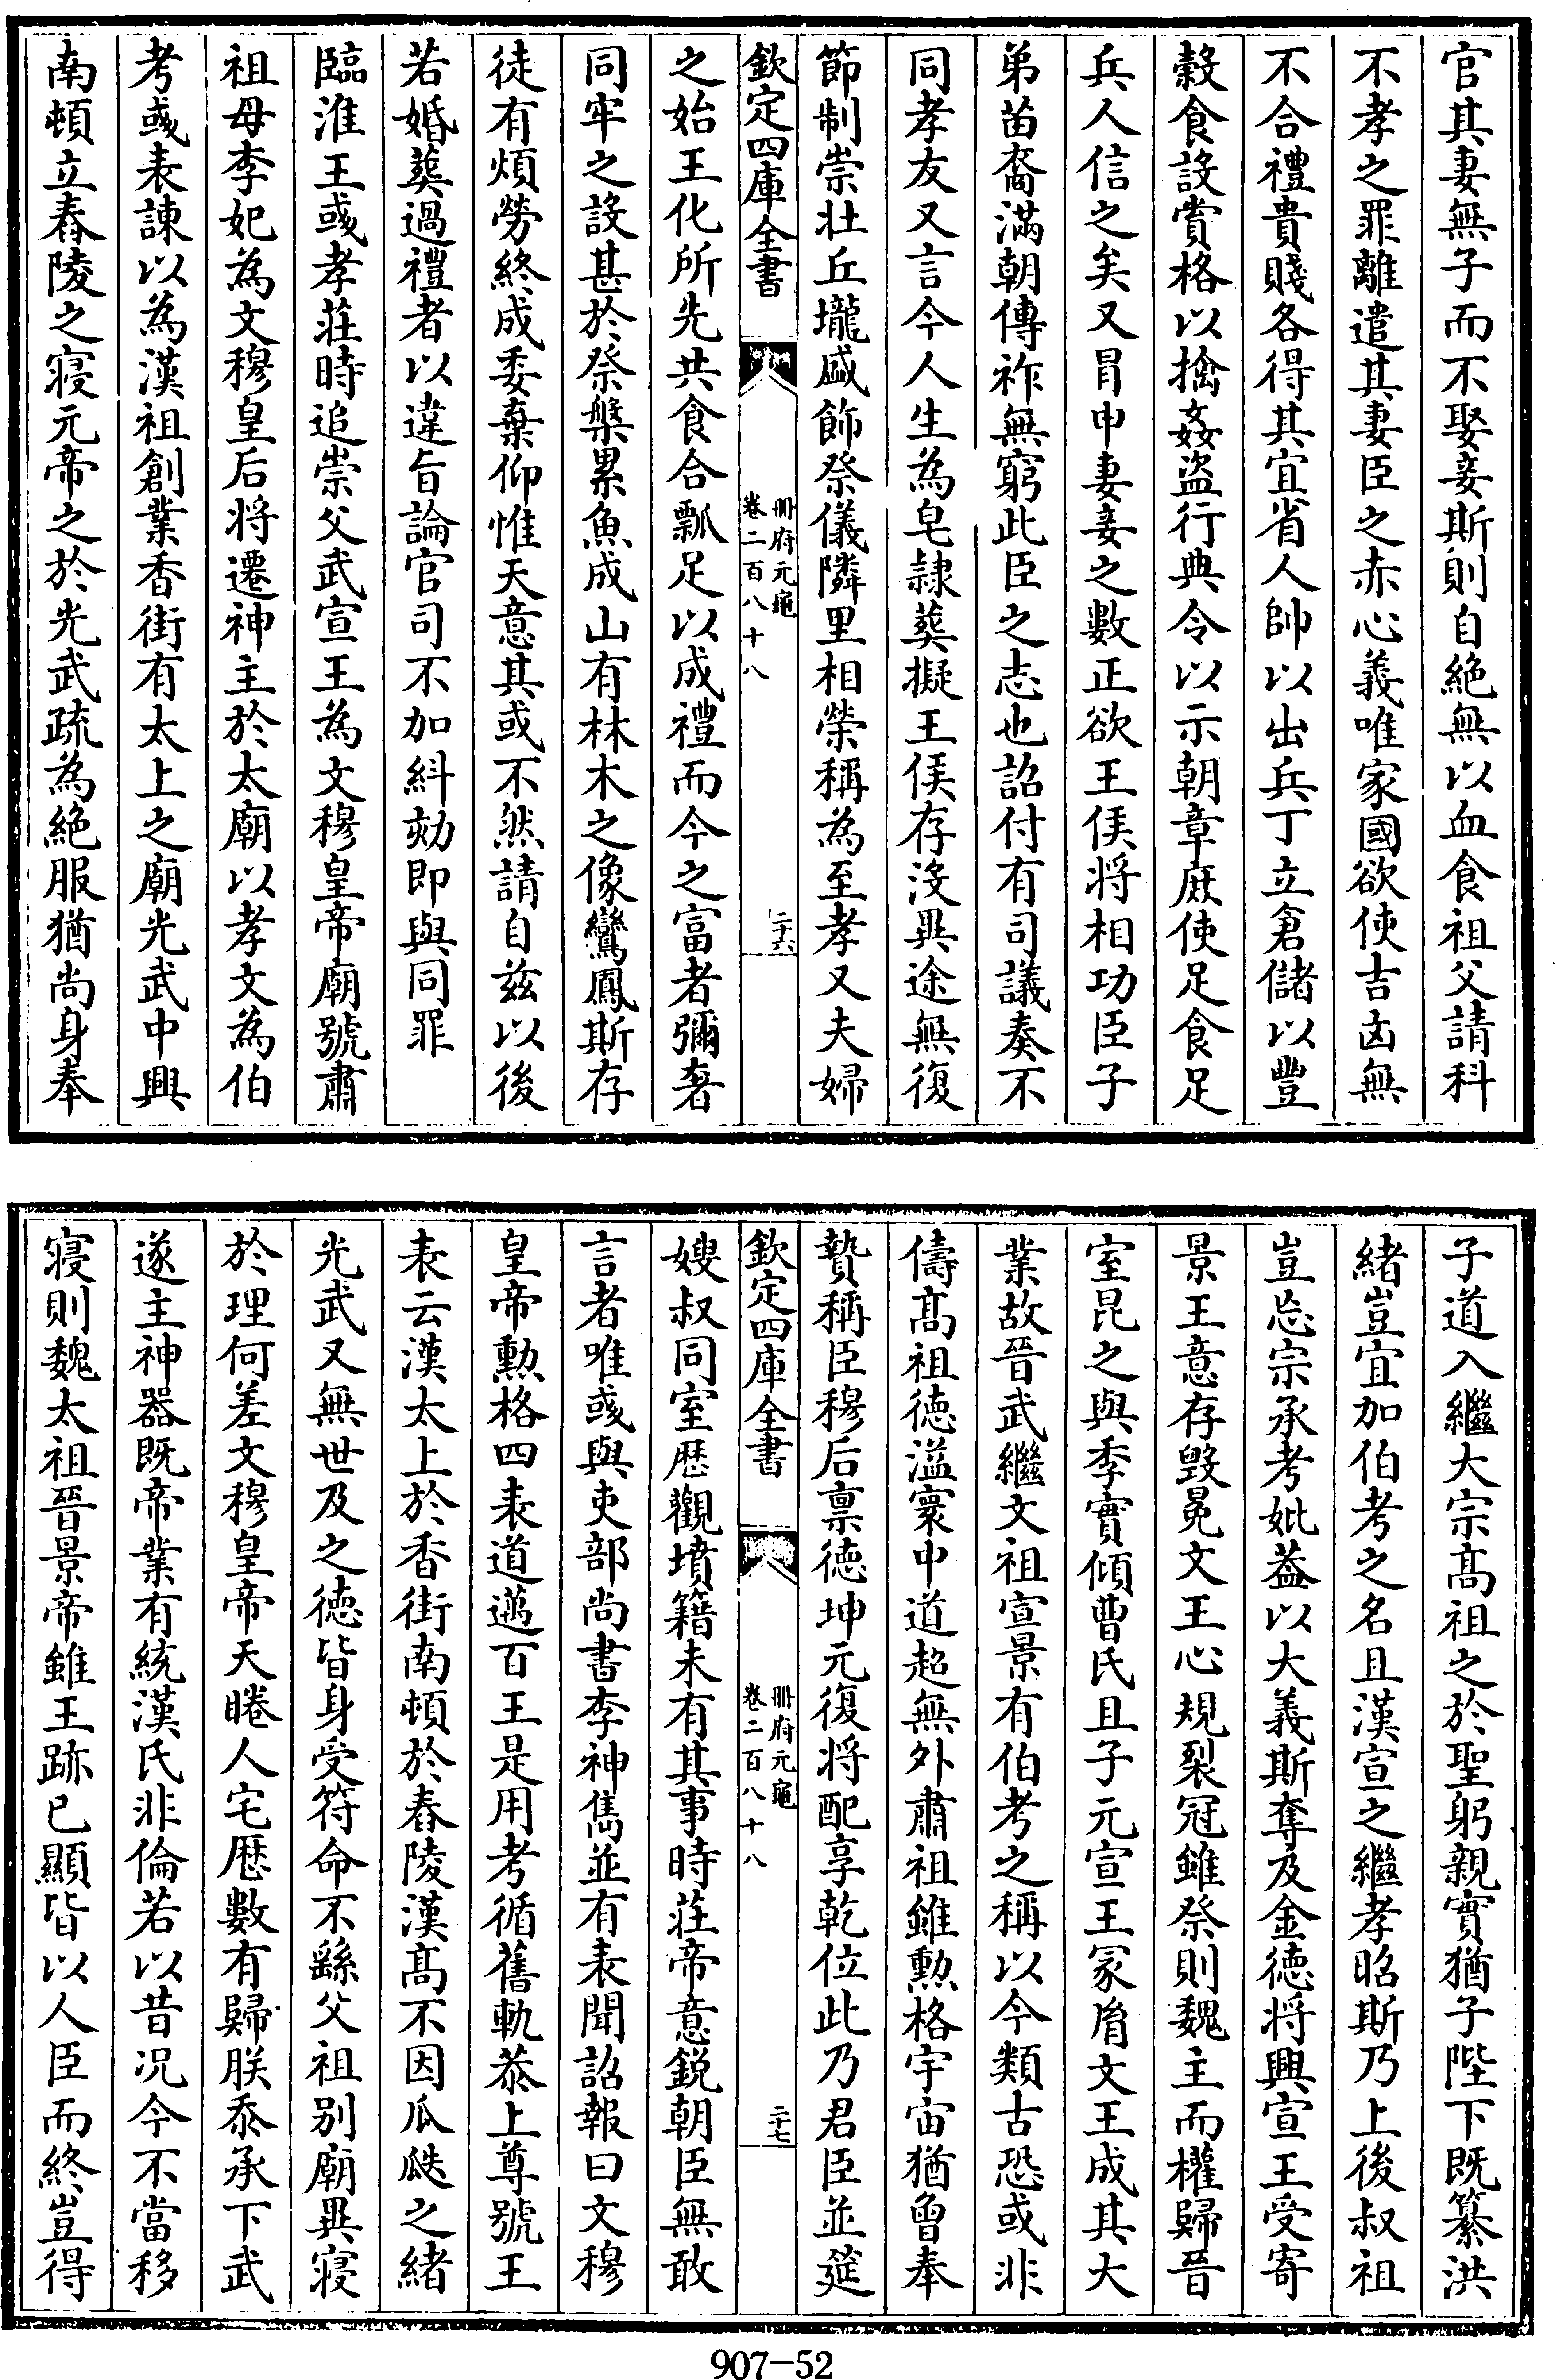 官其妻無子而不娶妾斯則自絶無以血食祖父請科
不孝之罪離遣其妻臣之赤心義唯家國欲使吉凶無
不合禮貴賤各得其宜省人帥以出兵丁立倉儲以豐
糓食設賞格以擒姦盜行典令以示朝章庶使足食足
兵人信之矣又冐申妻妾之數正欲王侯将相功臣子
弟苗裔滿朝傳祚無窮此臣之志也詔付有司議奏不
同孝友又言今人生為皂隷葬擬王侯存沒異途無復
節制崇壯丘壠盛飾祭儀隣里相榮稱為至孝又夫婦
欽定四庫全書
冊府元龜
卷二百八十八
二十六
之始王化所先共食合瓢足以成禮而今之富者彌奢
同牢之設甚於祭槃累魚成山有林木之像鸞鳳斯存
徒有煩勞終成委棄仰惟天意其或不然請自兹以後
若婚葬過禮者以違旨論官司不加糾劾即與同罪
臨淮王彧孝莊時追崇父武宣王為文穆皇帝廟號肅
祖母李妃為文穆皇后将遷神主於太廟以孝文為伯
考彧表諫以為漢祖創業香街有太上之廟光武中興
南頓立舂陵之寝元帝之於光武疏為絶服猶尚身奉
子道入繼大宗髙祖之於聖躬親實猶子陛下既纂洪
緒豈宜加伯考之名且漢宣之繼孝昭斯乃上後叔祖
豈忘宗承考妣葢以大義斯奪及金徳将興宣王受寄
景王意存毁冕文王心規裂冠雖祭則魏主而權歸晉
室昆之與季實傾曹氏且子元宣王冢胤文王成其大
業故晉武繼文祖宣景有伯考之稱以今類古恐或非
儔髙祖徳溢寰中道超無外肅祖雖勲格宇宙猶曾奉
贄稱臣穆后禀徳坤元復将配享乾位此乃君臣並筵
欽定四庫全書
冊府元龜
卷二百八十八
二十七
嫂叔同室歴觀墳籍未有其事時莊帝意鋭朝臣無敢
言者唯彧與吏部尚書李神儁並有表聞詔報曰文穆
皇帝勲格四表道邁百王是用考循舊軌㳟上尊號王
表云漢太上於香街南頓於舂陵漢髙不因瓜瓞之緒
光武又無世及之徳皆身受符命不繇父祖别廟異寝
於理何差文穆皇帝天睠人宅歴數有歸朕忝承下武
遂主神器既帝業有統漢氏非倫若以昔况今不當移
寝則魏太祖晉景帝雖王跡已顯皆以人臣而終豈得
907-52